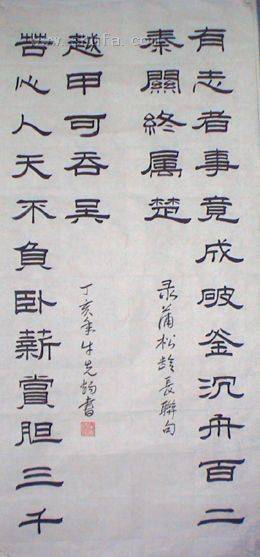 有志者事竟成破釜沉舟百二
秦關終属楚
录蒲松龄長聯句
苦心人天不負卧薪賞胆三千
越甲可吞吴
丁亥年牛先書